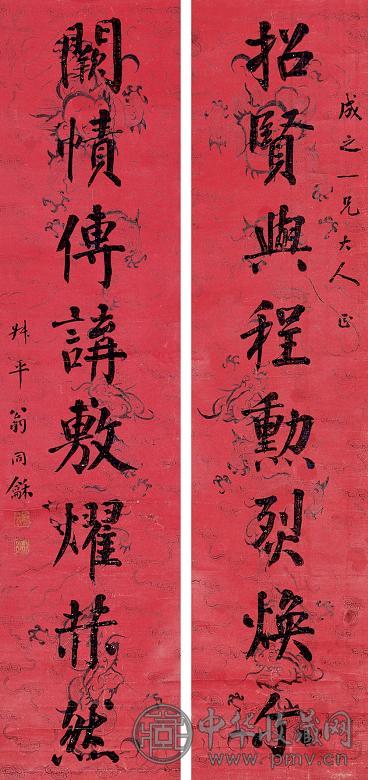 成之一兄大人正
招賢與程勳烈煥尒
闕幘傳講敷燿然
叔平翁同龢
中华收藏网
www.pmv.cn